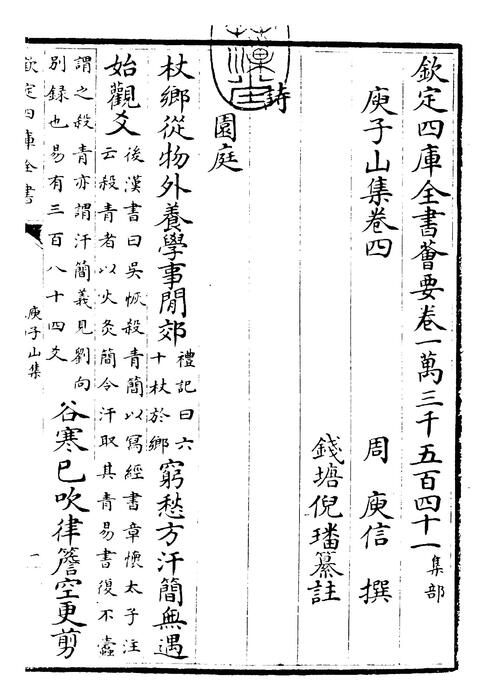 欽定四庫全書薈要卷一萬三千五百四十一 集部
庾子山集卷四
周 庾信 撰
錢塘倪璠纂註
詩
園庭
杖鄉從物外養學事閒郊 禮記曰六十杖於鄉 窮愁方汗簡無遇
始觀爻 後漢書曰吳恢殺青簡以寫經書章懷太子注云殺青者以火炙簡令汗取其青易書復不蠹
謂之殺青亦謂汗簡義見劉向別録也易有三百八十四爻 谷寒已吹律簷空更剪
欽定四庫全書
庾子山集
一